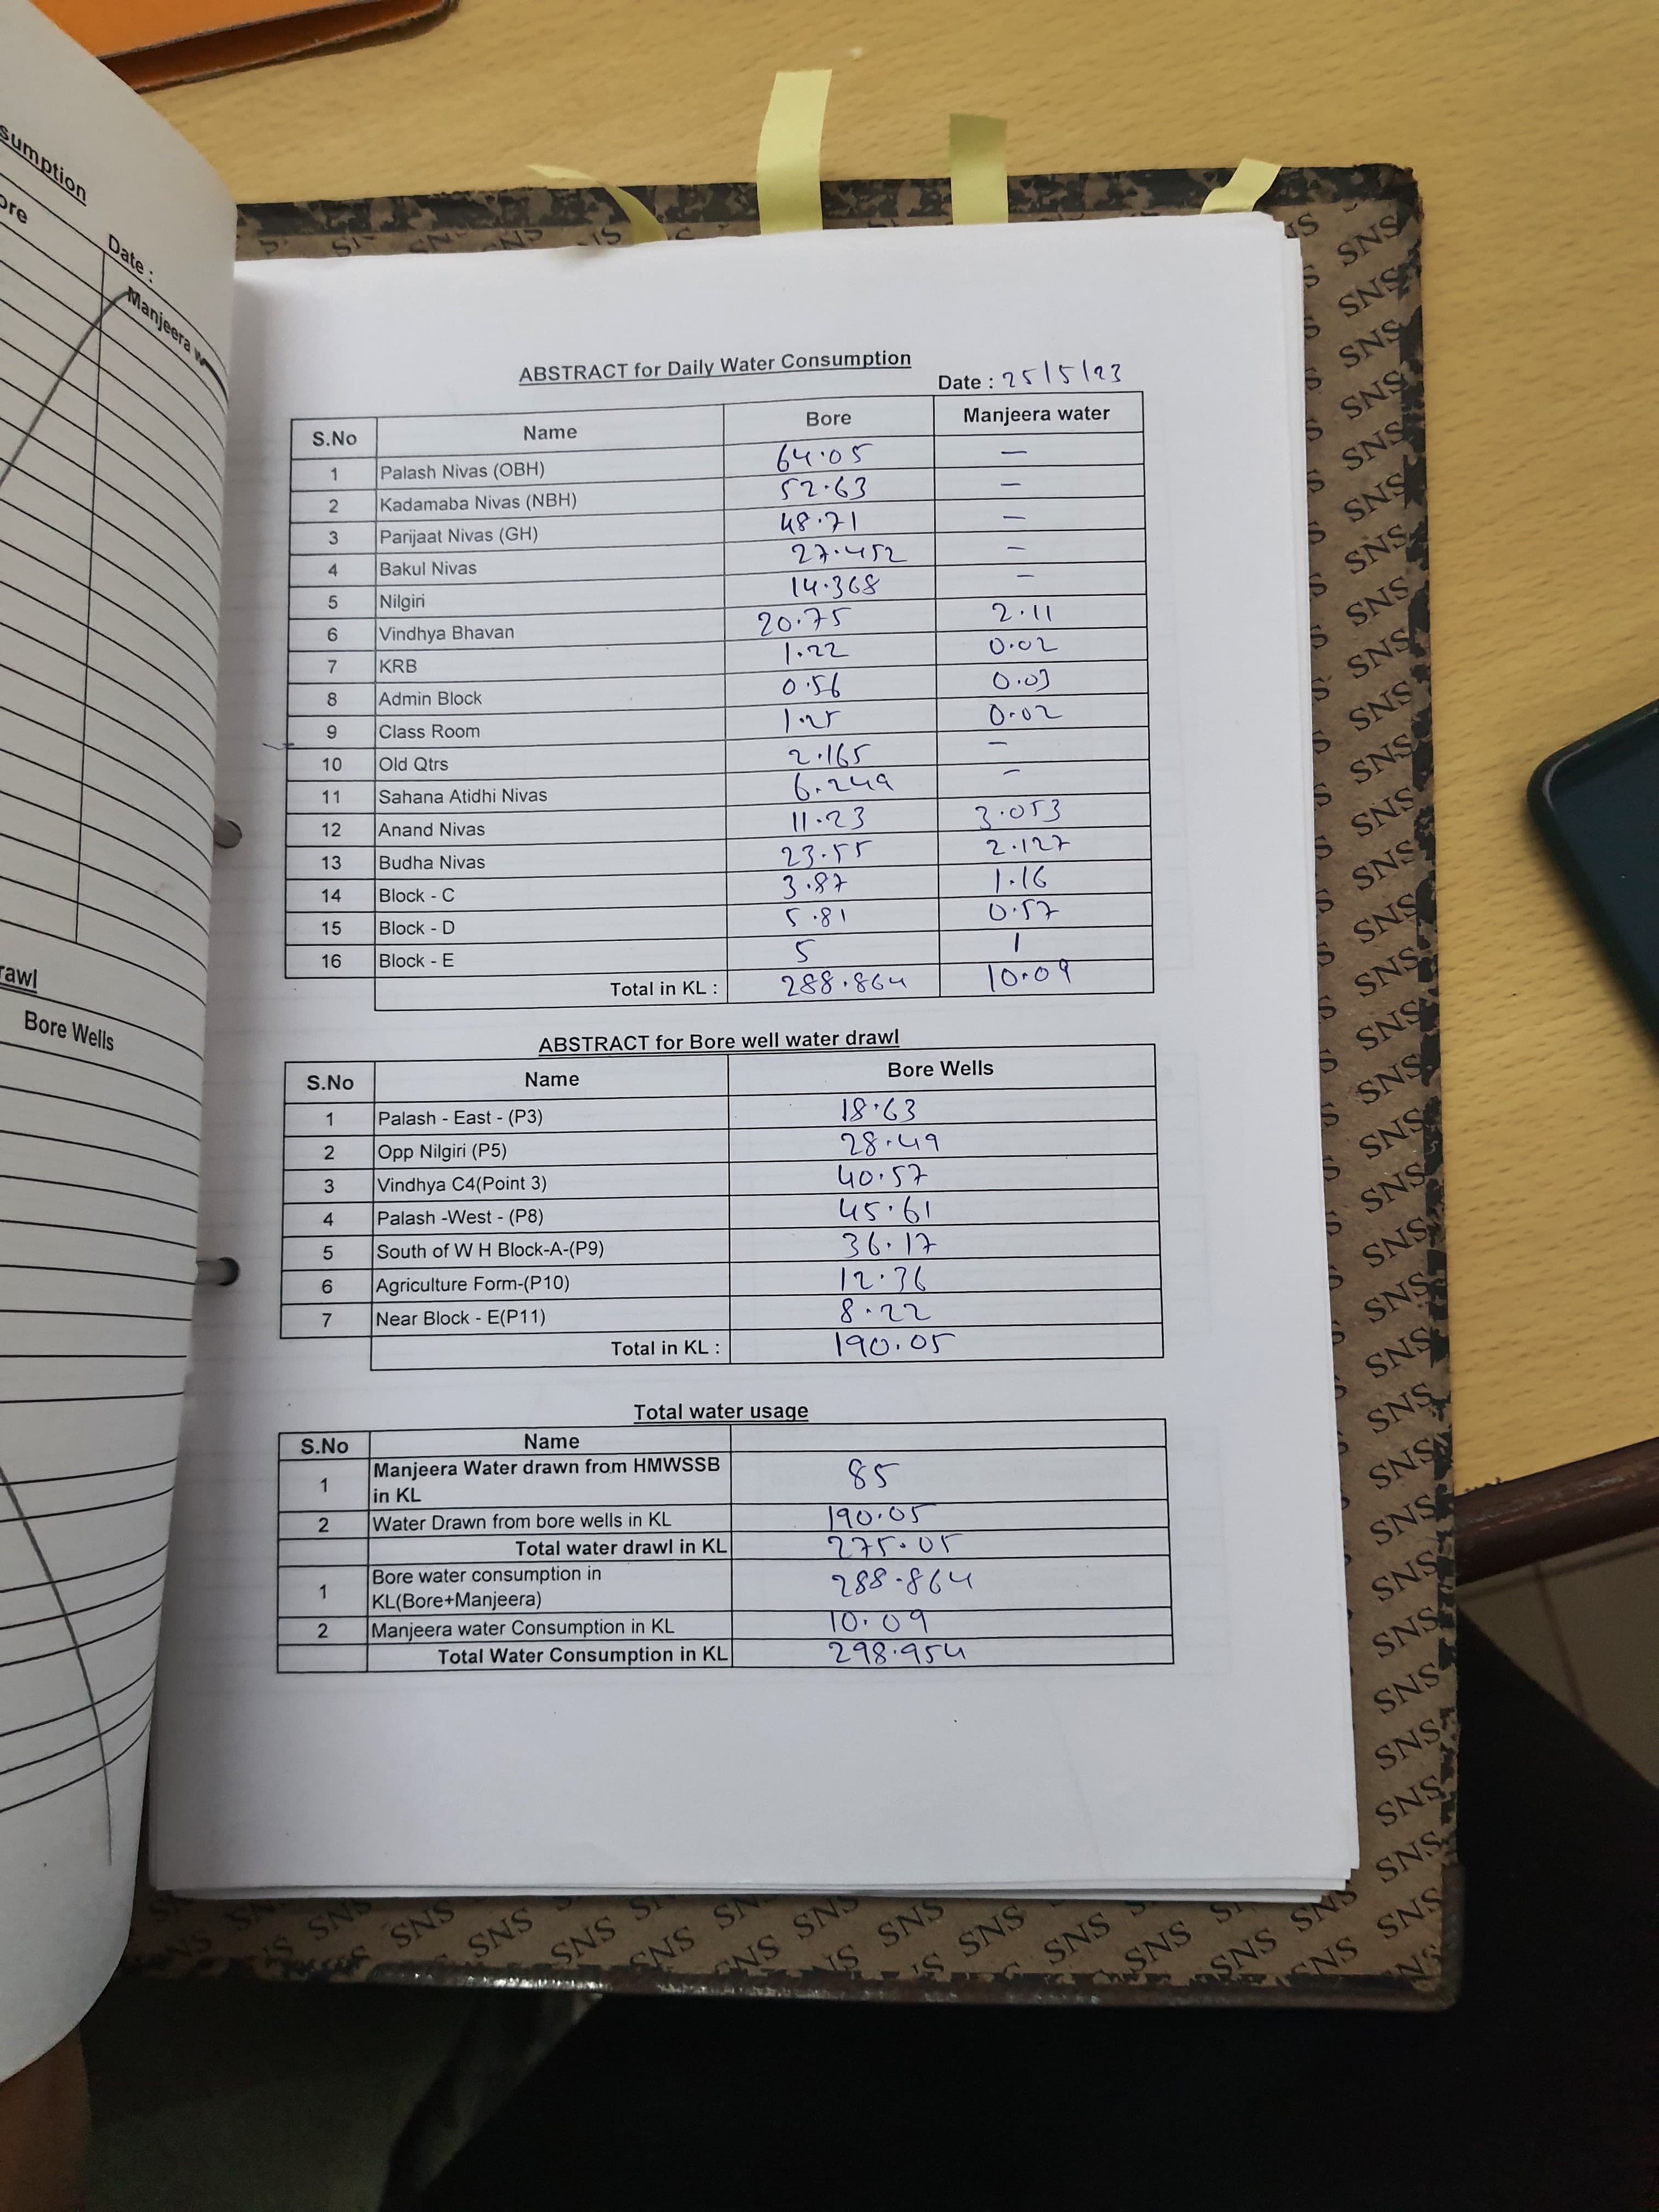 sumption
ore
Date :
Manjeera w
rawl
Bore Wells
ABSTRACT for Daily Water Consumption
Date : 25/5/23
S.No Name Bore Manjeera water
1 Palash Nivas (OBH) 64.05 —
2 Kadamaba Nivas (NBH) 52.63 —
3 Parijaat Nivas (GH) 48.71 —
4 Bakul Nivas 27.452 —
5 Nilgiri 14.368 —
6 Vindhya Bhavan 20.75 2.11
7 KRB 1.22 0.02
8 Admin Block 0.56 0.03
9 Class Room 1.25 0.02
10 Old Qtrs 2.165 —
11 Sahana Atidhi Nivas 6.249 —
12 Anand Nivas 11.23 3.053
13 Budha Nivas 23.55 2.127
14 Block - C 3.87 1.16
15 Block - D 5.81 0.57
16 Block - E 5 1
Total in KL : 288.864 10.09
ABSTRACT for Bore well water drawl
S.No Name Bore Wells
1 Palash - East - (P3) 18.63
2 Opp Nilgiri (P5) 28.49
3 Vindhya C4(Point 3) 40.57
4 Palash -West - (P8) 45.61
5 South of W H Block-A-(P9) 36.17
6 Agriculture Form-(P10) 12.36
7 Near Block - E(P11) 8.22
Total in KL : 190.05
Total water usage
S.No Name
1 Manjeera Water drawn from HMWSSB
in KL 85
2 Water Drawn from bore wells in KL 190.05
Total water drawl in KL 275.05
1 Bore water consumption in
KL(Bore+Manjeera) 288.864
2 Manjeera water Consumption in KL 10.09
Total Water Consumption in KL 298.954
SNS